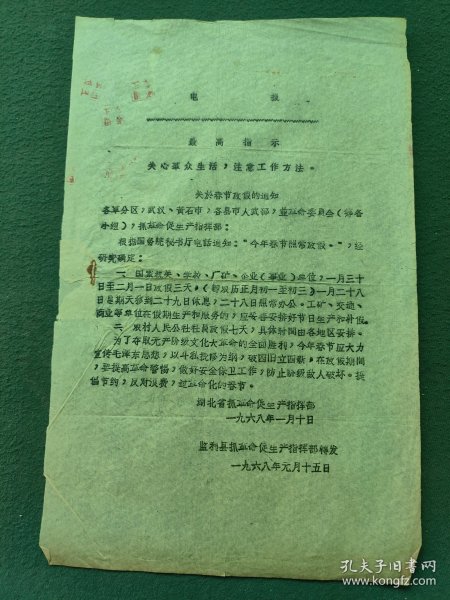 电 报
最 高 指 示
关心群众生活，注意工作方法。
关於春节放假的通知
各军分区，武汉、黄石市，各县市人武部，並革命委员会（筹备
小组），抓革命促生产指挥部：
根据国务院秘书厅电话通知：“今年春节照常放假。”，经
研究确定：
一、国家机关、学校、厂矿、企业（事业）单位，一月三十
日至二月一日放假三天，（即农历正月初一至初三）一月二十八
日星期天移到二十九日休息，二十八日照常办公。工矿、交通、
商业等单位在假期生产和服务的，应妥善安排好节日生产和补假。
二、农村人民公社社员放假七天，具体时间由各地区安排。
为了夺取无产阶级文化大革命的全面胜利，今年春节应大力
宣传毛泽东思想，以斗私批修为纲，破四旧立四新，在放假期间，
要提高革命警惕，做好安全保卫工作，防止阶级敌人破坏。提
倡节约，反对浪费，过革命化的春节。
湖北省抓革命促生产指挥部
一九六八年一月十日
监利县抓革命促生产指挥部转发
一九六八年元月十五日
孔夫子旧书网
www.kongfz.com